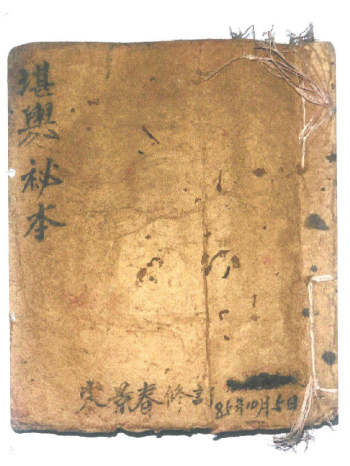 堪輿秘本
景春修訂
85年10月5日